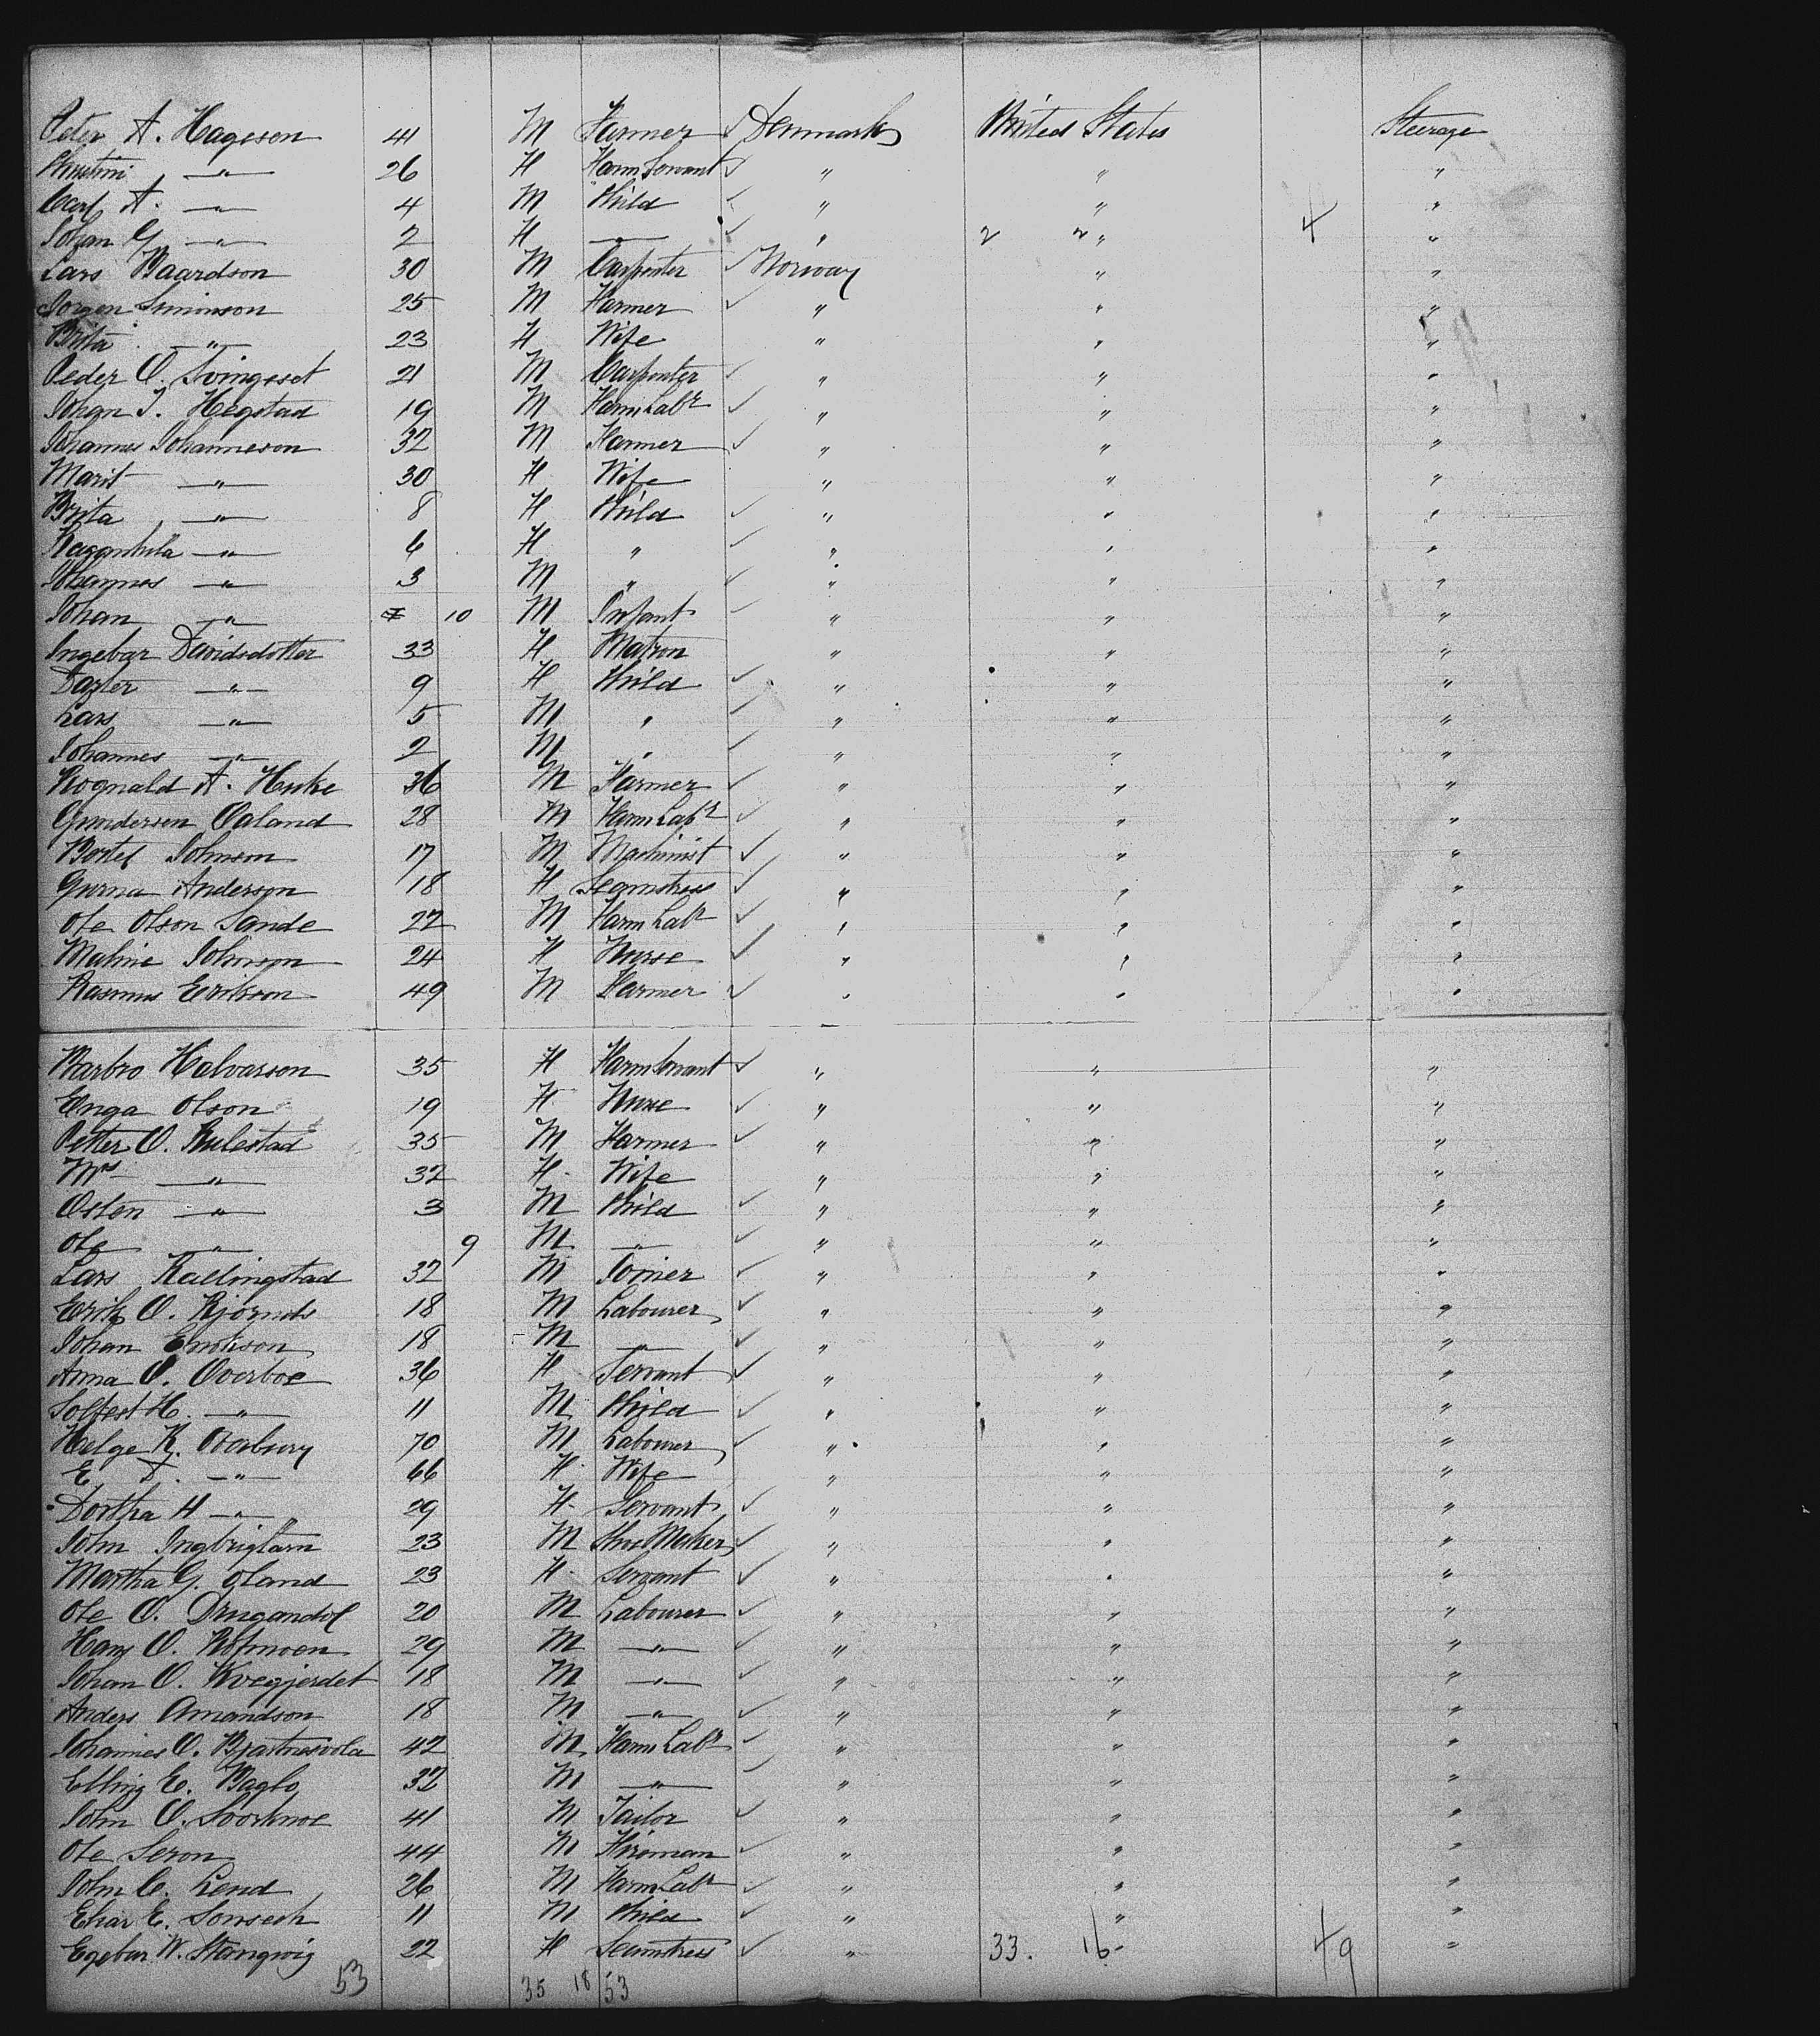 Peter A. Hageson 41 M Farmer ✓ Denmark United States Steerage
26 F Farm Servant ✓ " " "
Carl A. —"— 4 M Child ✓ " " "
Johan G —"— 2 F —"— ✓ " 2 2 " 4 "
Lars Baardson 30 M Carpenter ✓ Norway " "
Jorgen Simonson 25 M Farmer ✓ " " "
Brita —"— 23 F Wife " " "
Peder O. Svingeset 21 M Carpenter ✓ " " "
Johan T. Hegstad 19 M Farm Labr ✓ " " "
Johannes Johanneson 32 M Farmer ✓ " " "
Marit —"— 30 F Wife " " "
Brita —"— 8 F Child ✓ " " "
—"— 6 F " ✓ " " "
Johannes —"— 3 M " ✓ " " "
Johan —"— 10 M Infant ✓ " " "
Ingebar Davidsdotter 33 F Matron " " "
—"— 9 F Child ✓ " " "
Lars —"— 5 M " ✓ " " "
Johannes —"— 2 M " ✓ " " "
Rognald A. Huke 36 M Farmer ✓ " " "
Gundersen Oaland 28 M Farm Labr ✓ " " "
Bertel Johnson 17 M Machinist ✓ " " "
Gurna Anderson 18 F Seamstress ✓ " " "
Ole Olson Sande 22 M Farm Labr ✓ " " "
Maline Johnson 24 F Nurse ✓ " " "
Rasmus Erikson 49 M Farmer ✓ " " "
Barbro Halvarson 35 F Farm Servant ✓ " " "
Enga Olson 19 F Nurse ✓ " " "
Petter O. Rulestad 35 M Farmer ✓ " " "
Mrs —"— 32 F Wife " " "
Osten —"— 3 M Child ✓ " " "
Ole —"— 9 M —"— ✓ " " "
Lars Kallingstad 32 M Joiner ✓ " " "
Erik O. 18 M Labourer ✓ " " "
Johan Erikson 18 M —"— ✓ " " "
Anna O. Overboe 36 F Servant ✓ " " "
Solfest H. —"— 11 M Child ✓ " " "
Helge K. 70 M Labourer ✓ " " "
E. —"— 66 F Wife " " "
Dortha H —"— 29 F Servant ✓ " " "
John 23 M Shoe Maker ✓ " " "
Martha G. Oland 23 F Servant ✓ " " "
Ole O. Drugandol 20 M Labourer ✓ " " "
Hans O. 29 M —"— ✓ " " "
Johan O. Kvegjerdet 18 M —"— ✓ " " "
Anders Amandson 18 M —"— ✓ " " "
Johannes O. 42 M Farm Labr ✓ " " "
Elling E. Baglo 32 M —"— ✓ " " "
John O. 41 M Tailor ✓ " " "
Ole Seron 44 M Fireman ✓ " " "
John C. Lend 26 M Farm Labr ✓ " " "
E. 11 M Child ✓ " " "
W. Stangvig 22 F Seamstress ✓ " 33. 16 " 49 "
53 35 18 53